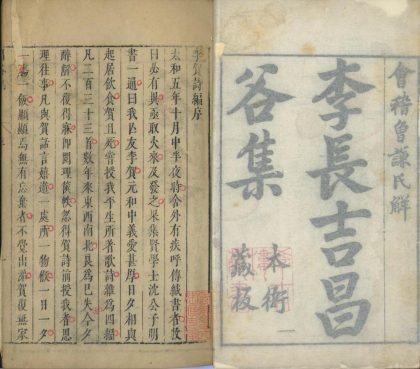 會稽曾謙氏解
李長吉昌
谷集
本衙
藏板
李賀詩編序
太和五年十月中半夜時舍外有疾呼傳緘書者牧
曰必有異亟取火來及發之果集賢學士沈公子明
書一通曰我亡友李賀元和中義愛甚厚日夕相與
起居飲食賀且死嘗授我平生所著歌詩離為四編
凡二百三十三首數年來東西南北良為已失今夕
醉解不復得寐即閱理篋帙忽得賀詩前授我者思
理往事凡與賀話言嬉遊一處所一物候一日一夕
一觴一飯顯顯焉無有忘棄者不覺出涕賀復無家